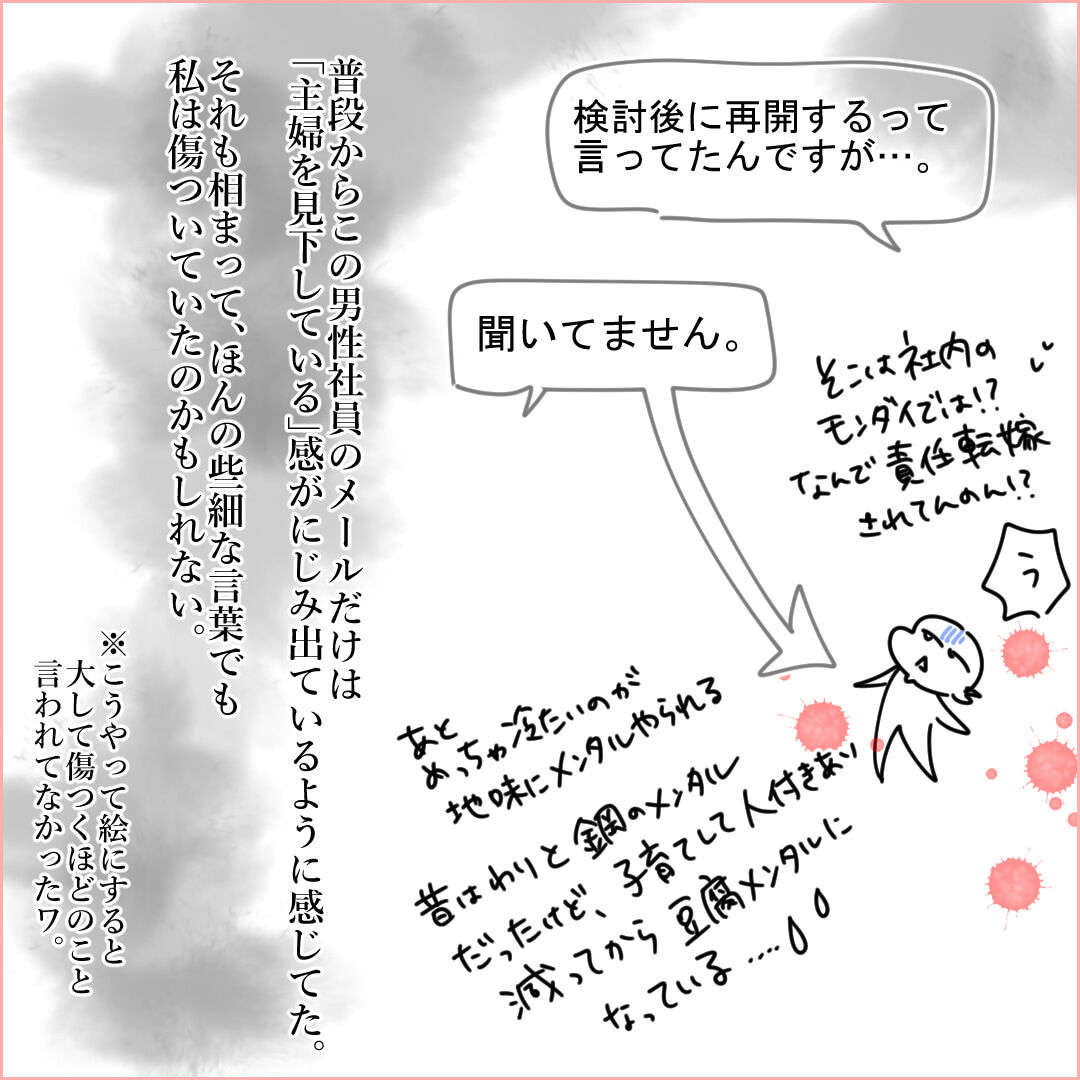 検討後に再開するって
言ってたんですが…。
聞いてません。
そこは社内の
モンダイでは!?
なんで責任転嫁
されてんのん!?
う
あと
めっちゃ冷たいのが
地味にメンタルやられる
昔はわりと鋼のメンタル
だったけど、子育てして人付きあい
減ってから豆腐メンタルに
なっている……
普段からこの男性社員のメールだけは
「主婦を見下している」感がにじみ出ているように感じてた。
それも相まって、ほんの些細な言葉でも
私は傷ついていたのかもしれない。
※こうやって絵にすると
大して傷つくほどのこと
言われてなかったワ。